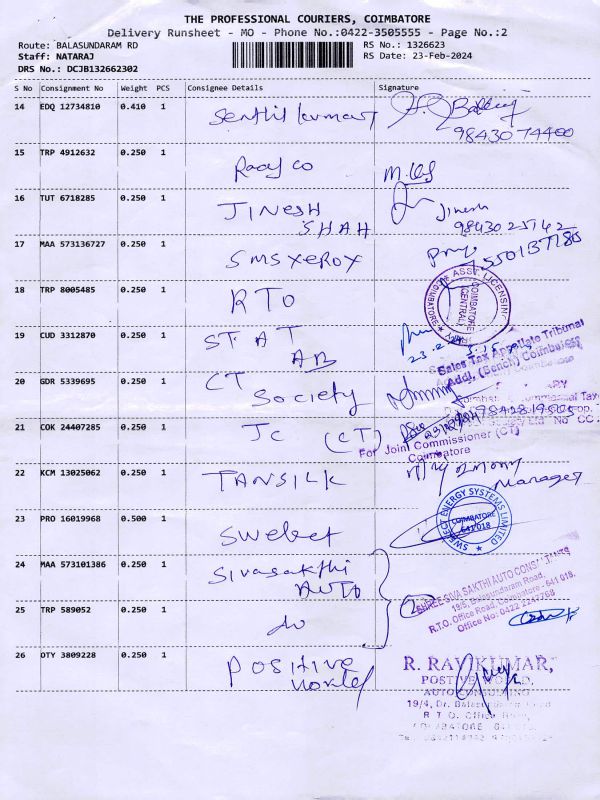 THE PROFESSIONAL COURIERS, COIMBATORE
Delivery Runsheet - MO - Phone No.:0422-3505555 - Page No.:2
Route: BALASUNDARAM RD
RS No.: 1326623
Staff: NATARAJ
RS Date: 23-Feb-2024
DRS No.: DCJB132662302
S No Consignment No Weight PCS Consignee Details Signature
14 EDQ 12734810 0.410 1 Senthil kumar
98430 74400
15 TRP 4912632 0.250 1 Rooys co
16 TUT 6718285 0.250 1 JINESH SHAH Jinesh
98430 25142
17 MAA 573136727 0.250 1 SMS XEROX
18 TRP 8005485 0.250 1 RTO
ASST. LICENSING
COIMBATORE (CENTRAL)
19 CUD 3312870 0.250 1 STAT AB
Sales Tax Appellate Tribunal
Addl. (Bench) Coimbatore
20 GDR 5339695 0.250 1 CT Society
21 COK 24407285 0.250 1 JC (CT)
For Joint Commissioner (CT)
Coimbatore
22 KCM 13025062 0.250 1 TANSILK
Manager
23 PRO 16019968 0.500 1 Swelect
SWELECT ENERGY SYSTEMS LIMITED
COIMBATORE
641 018
24 MAA 573101386 0.250 1 Sivasakthi AUTO
SHREE SIVA SAKTHI AUTO CONSULTANTS
19/5, Balasundaram Road,
R.T.O. Office Road, Coimbatore - 641 018.
Office No: 0422 2247768
25 TRP 589052 0.250 1 do
26 OTY 3809228 0.250 1 POSITIVE World
R. RAVIKUMAR,
POSITIVE WORLD,
AUTO CONSULTING
19/4, Dr. Balasundaram Road
R T O. Office Road,
COIMBATORE